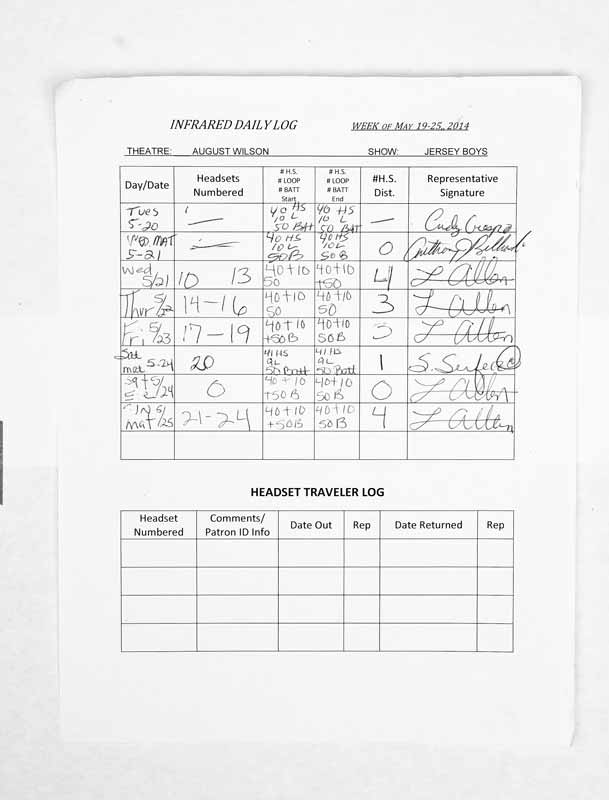 INFRARED DAILY LOG WEEK OF MAY 19-25, 2014
THEATRE: AUGUST WILSON SHOW: JERSEY BOYS
Day/Date Headsets Numbered # H.S. # LOOP # BATT Start # H.S. # LOOP # BATT End #H.S. Dist. Representative Signature
Tues 5-20 — 40 HS 10 L 50 Batt 40 HS 10 L 50 BAT —
WED MAT 5-21 — 40 HS 10 L 50 B 40 HS 10 L 50 B 0
Wed 5/21 10 13 40+10 50 40+10 +50 4 L Allen
Thur 5/22 14-16 40+10 50 40+10 50 3 L Allen
Fri 5/23 17-19 40+10 +50B 40+10 50B 3 L Allen
Sat mat 5-24 20 41 HS 9L 50 Batt 41 HS 9L 50 Batt 1
Sat 5/24 E 0 40+10 +50B 40+10 50B 0 L Allen
5/25 mat 21-24 40+10 +50B 40+10 50B 4 L Allen
HEADSET TRAVELER LOG
Headset Numbered Comments/ Patron ID Info Date Out Rep Date Returned Rep